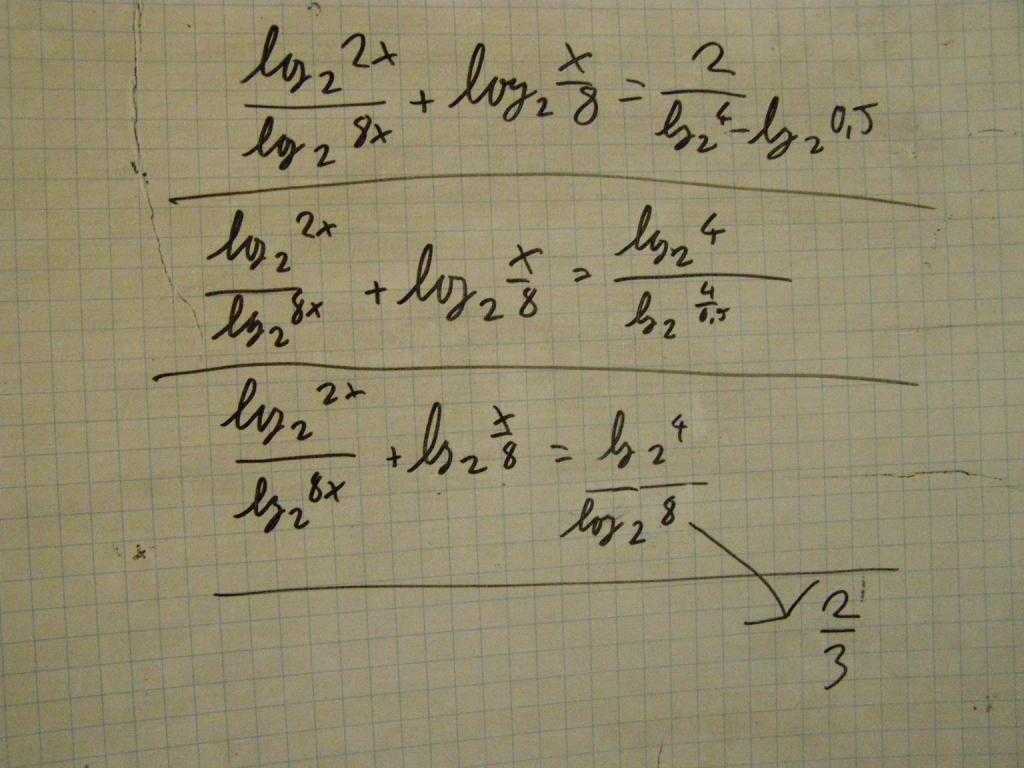 log₂ 2x / log₂ 8x + log₂ x/8 = 2 / lg₂ 4 - lg₂ 0,5
log₂ 2x / lg₂ 8x + log₂ x/8 = lg₂ 4 / lg₂ 4/0,5
log₂ 2x / lg₂ 8x + lg₂ x/8 = lg₂ 4 / log₂ 8
2/3